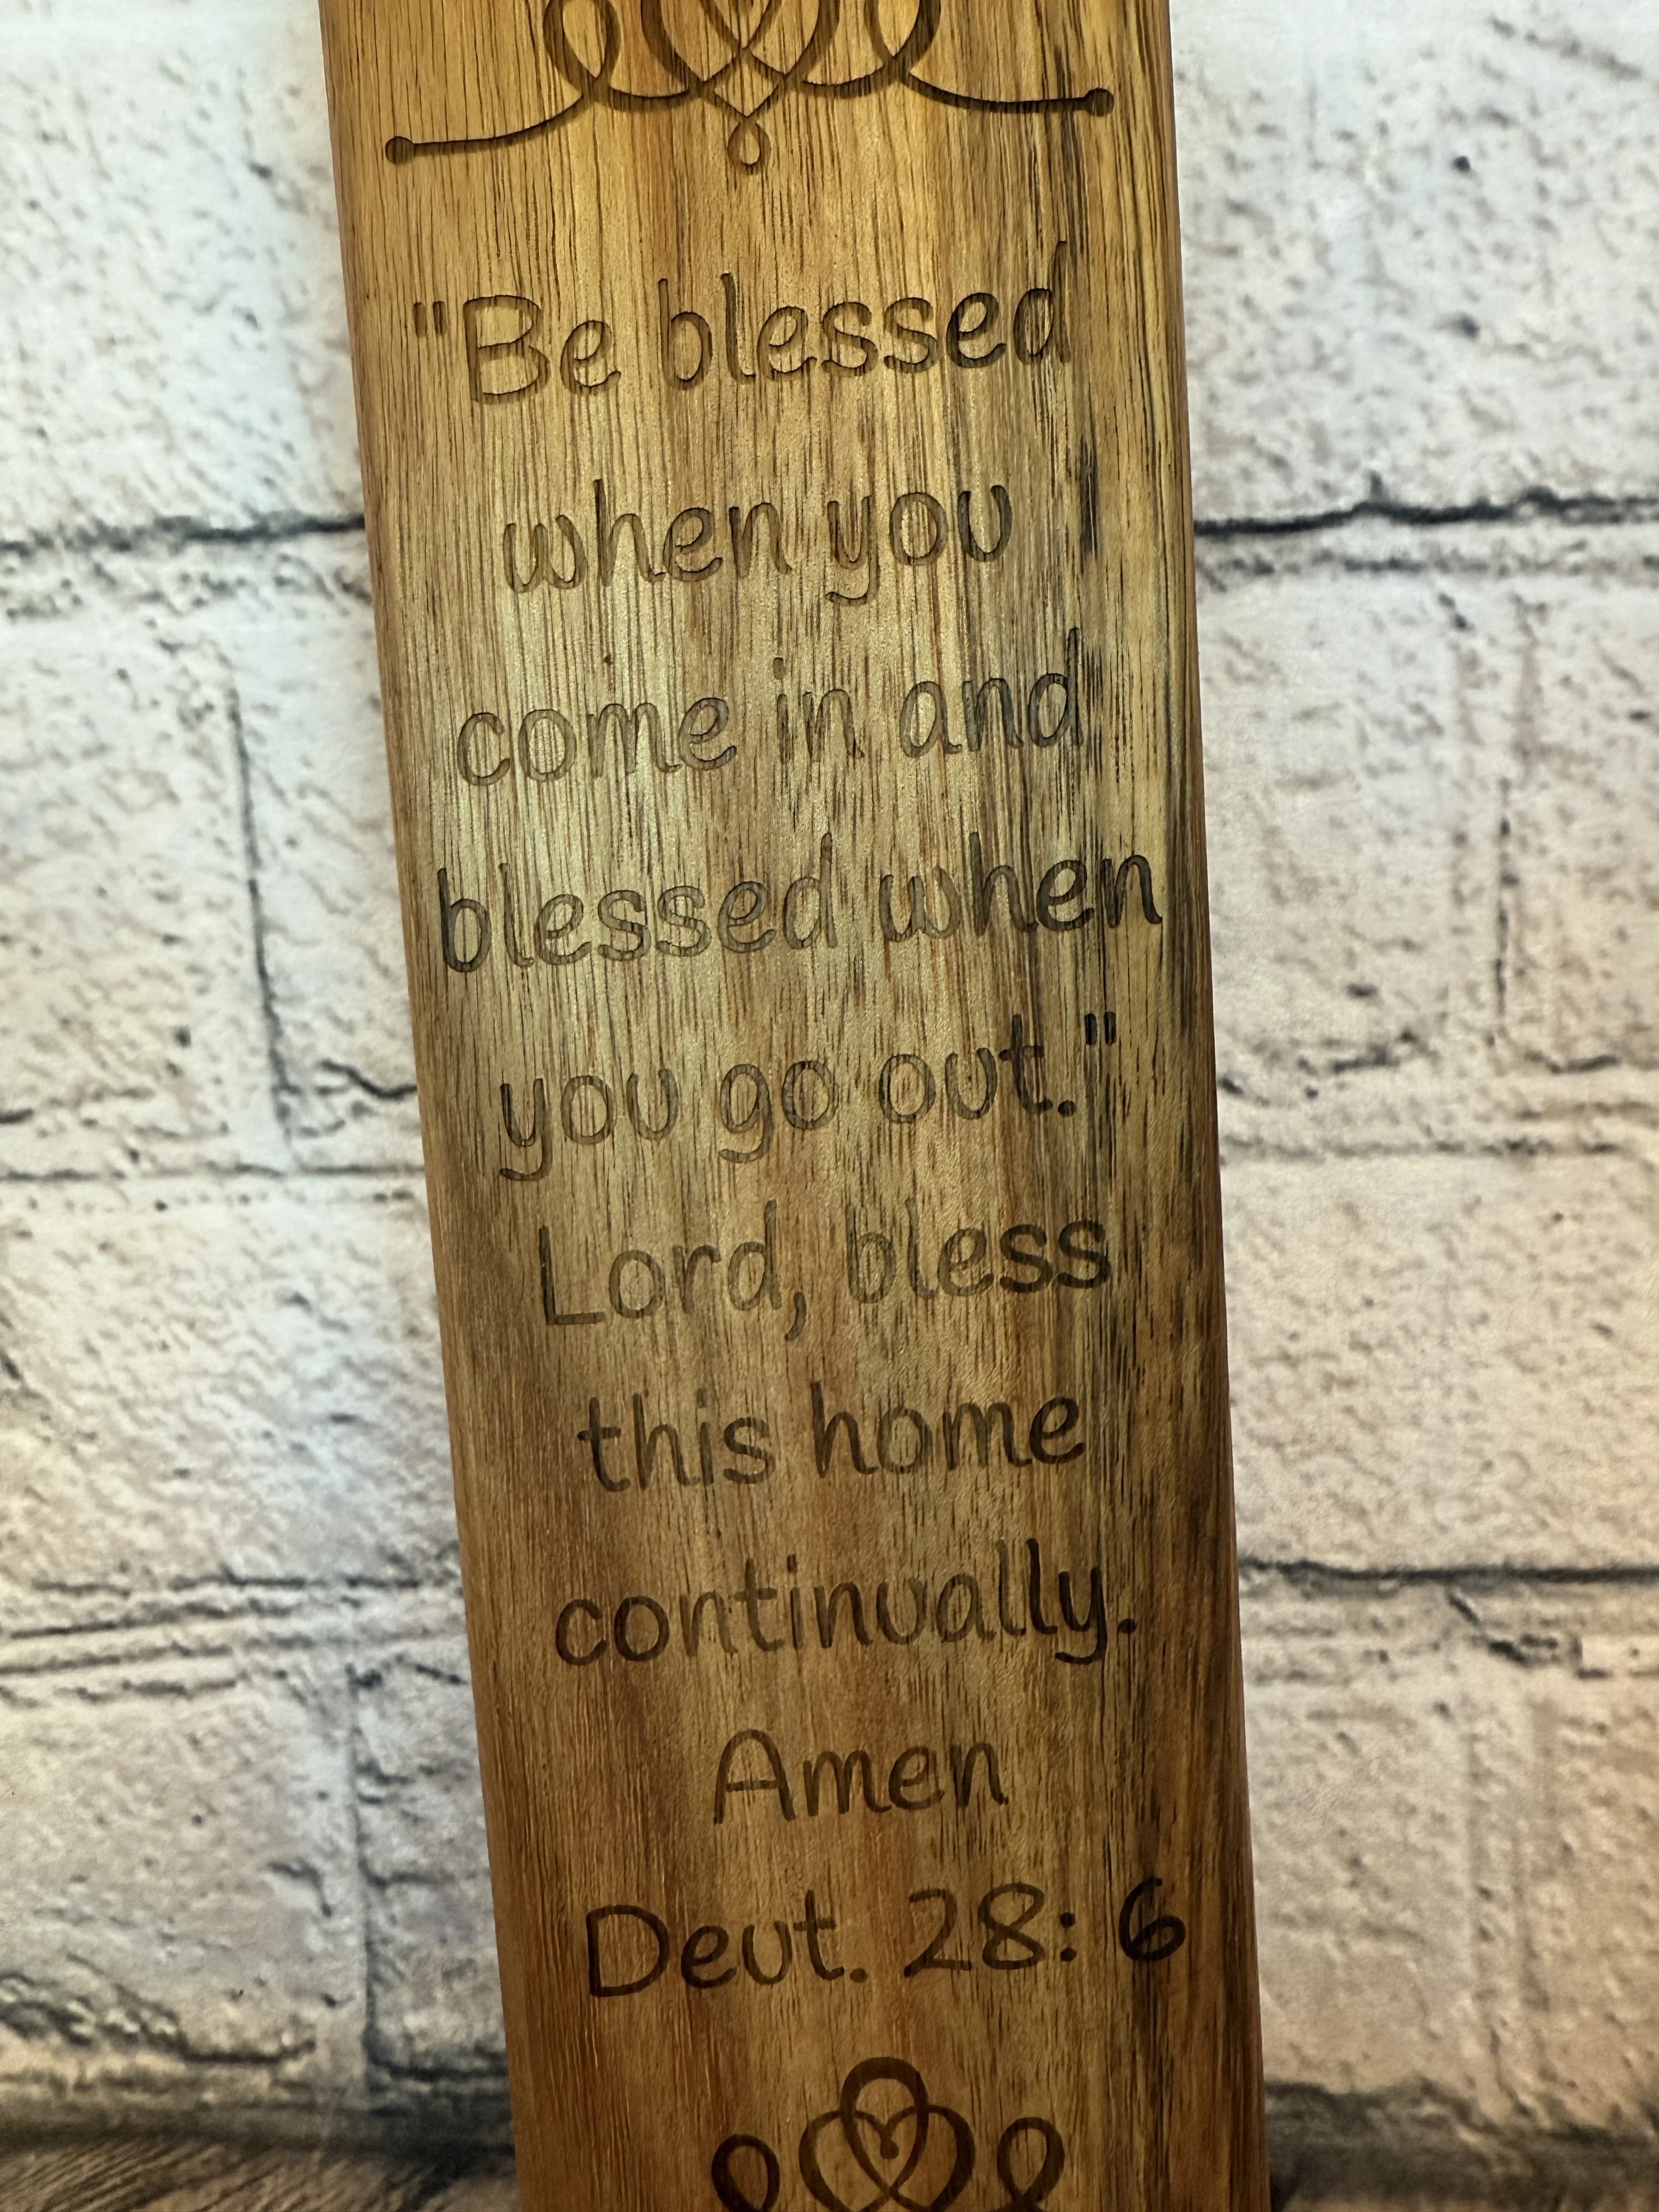 "Be blessed
when you
come in and
blessed when
you go out."
Lord, bless
this home
continually.
Amen
Deut. 28: 6